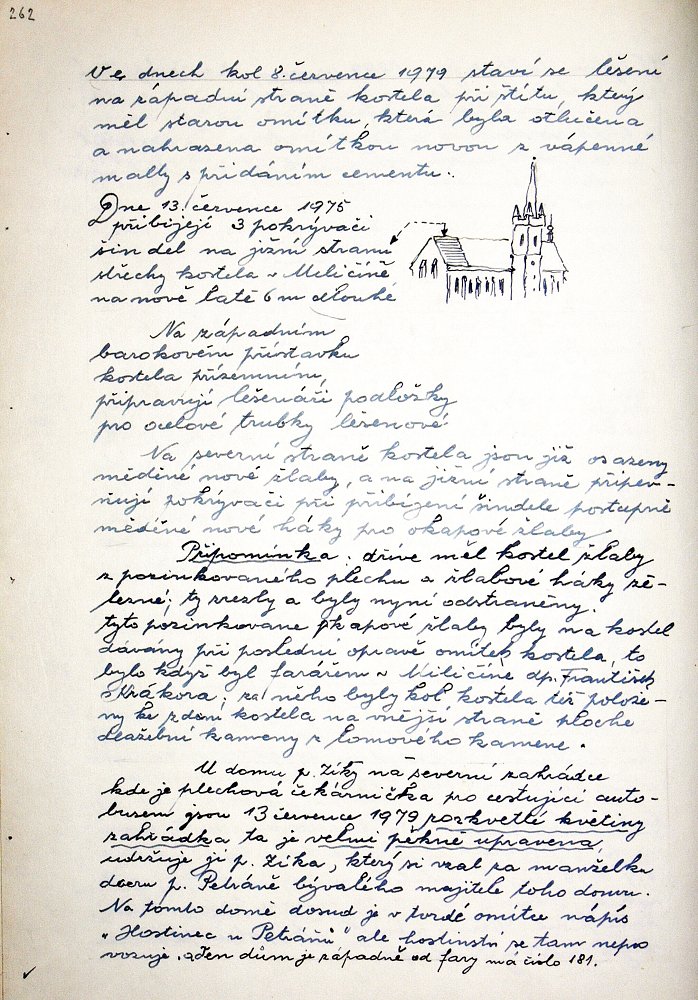 262
Ve dnech kol 8. července 1979 staví se lěšení
na západní straně kostela při štítu, který
měl starou omítku, která byla otlučena
a nahrazena omítkou novou z vápenné
malty s přidáním cementu.
Dne 13. července 1975
přibíjejí 3 pokrývači
šindel na jižní stranu
střechy kostela v Miličíně
na nové latě 6 m dlouhé
Na západním
barokovém přístavku
kostela přízemním,
připravují lěšenáři podložky
pro ocelové trubky lěšenové
Na severní straně kostela jsou již osazeny
měděné nové žlaby, a na jižní straně připev-
ňují pokrývači při přibízení šindele postupně
měděné nové háky pro okapové žlaby.
Připomínka: dříve měl kostel žlaby
z pozinkovaného plechu a žlabové háky že-
lezné; ty zrezly a byly nyní odstraněny.
tyto pozinkované okapové žlaby byly na kostel
dávány při poslední opravě omítek kostela, to
bylo když byl farářem v Miličíně dp. František
Křákora; za něho byly kol kostela též polože-
ny ke zdoní kostela na vnější straně ploché
dlažební kameny z lomového kamene.
U domu p. Zíky na severní zahrádce
kde je plechová čekárnička pro cestující auto-
busem jsou 13 července 1979 rozkvetlé květiny
zahrádka ta je velmi pěkně upravena,
udržuje ji p. Zíka, který si vzal za manželku
dceru p. Petráně bývalého majitele toho domu.
Na tomto domě dosud je v tvrdé omítce nápis
„Hostinec u Petráňů" ale hostinství se tam nepro
vozuje, a Ten dům je západně od fary má číslo 181.